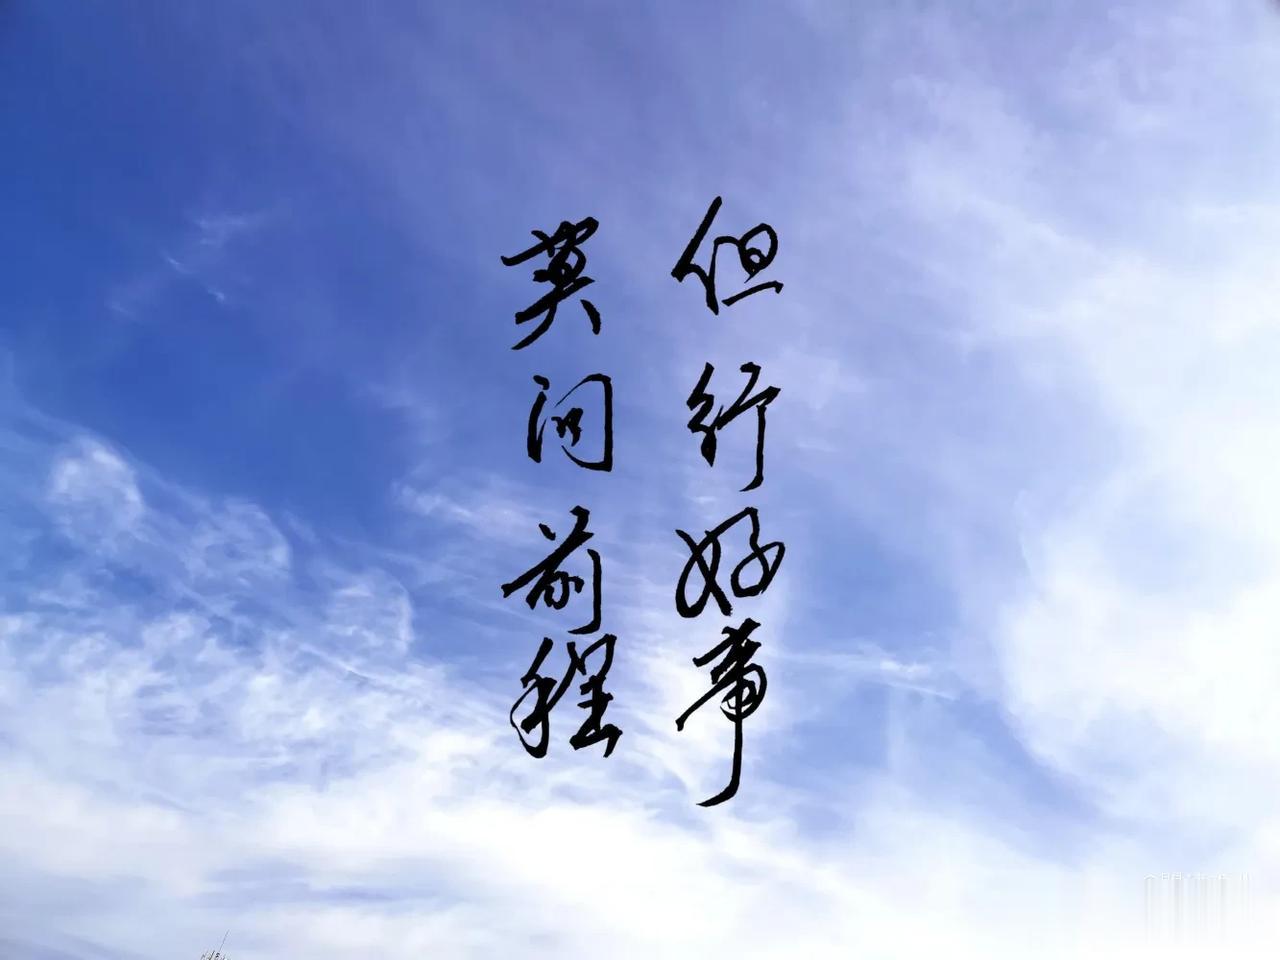 但行好事
莫问前程